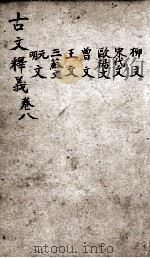 柳文
宋代文
歐陽文
曾文
王文
三蘇文
元明文
古文釋義卷八